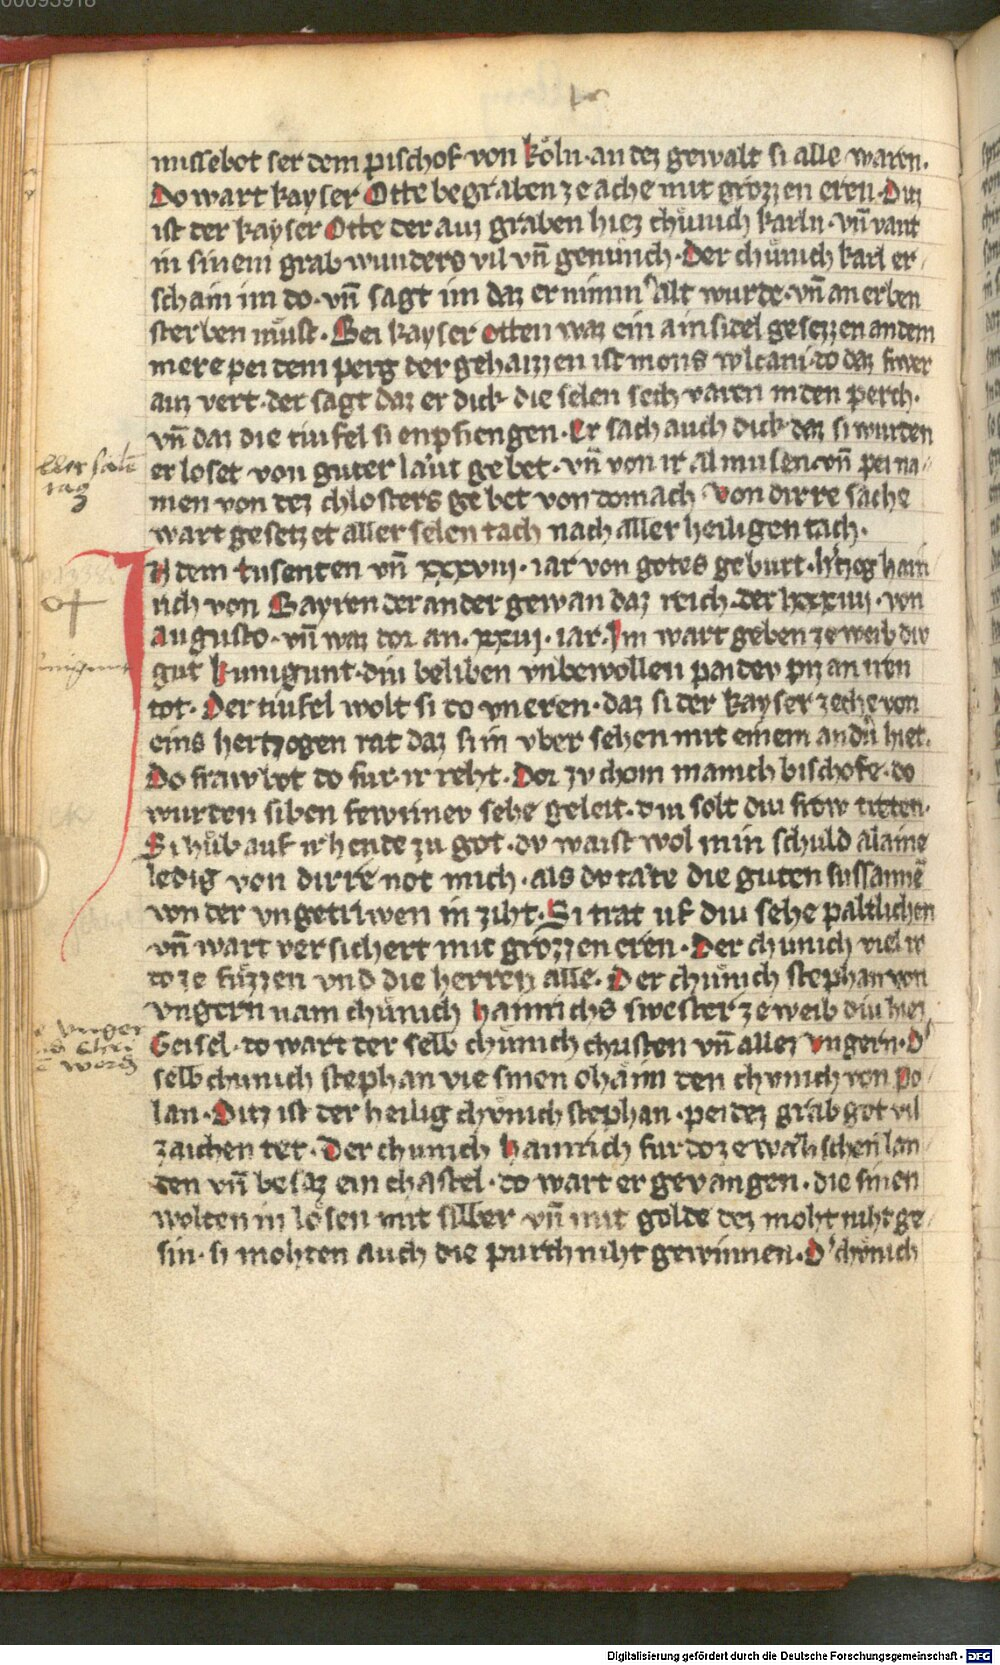 missebot ser dem pischof von köln · an dez gewalt si alle waren.
Do wart kayser Otte begraben ze ache mit grozzen eren · Ditz
ist der kayser Otte der auz graben hiez chůnich karln · vn̄ vant
in sinem grab wunders vil vn̄ genůnch · Der chůnich karl er/
schain im do · vn̄ sagt im daz er nimm alt wurde · vn̄ an erben
sterben můst · Bei kayser otten waz ein ainsidel gesezzen an dem
mere pei dem perg der gehaizzen ist mons wlcani · do daz fiwer
auz vert · der sagt daz er dick die selen sech varen in den perch ·
vn̄ daz die tiufel si enpfiengen · Er sach auch dick daz si wurden
erloset von guter laut gebet · vn̄ von ir almusen · vn̄ pei na/
men von dez chlosters gebet von domach Von dirre sache
wart gesetzet aller selen tach nach aller heiligen tach ·
In dem tusenten vn̄ xxxviii · iar von gotes geburt · h'tzog hain
rich von Bayren der ander gewan daz reich · der lxxxiiij · von
augusto · vn̄ waz dor an · xxvj · iar · Im wart geben ze weib div
gut kunigunt · diu beliben vnbewollen paidev piz an iren
tot · Der tiufel wolt si do vneren · daz si der kayser zeche von
eins hertzogen rat daz si in vber sehen mit einem andn̄ hiet ·
Do fraw bot do fur ir reht · Dor zv chom manich bischofe · do
wurden siben fewriner sehe geleit · din solt diu frow tretten ·
Si hůb auf ir hende zu got · dv waist wol min schuld alaine
ledig von dirre not mich · als dv tate die guten sussanne
von der vngetriwen in ziht · Si trat uf diu sehe paltlichen
vn̄ wart versichert mit grozzen eren · Der chunich viel ir
do ze fůzzen vnd die herren alle · Der chůnich stephan von
vngern nam chůnich hainrichs swester ze weib diu hiez
Geisel · do wart der selb chůnich christen vn̄ allez vngern · D'
selb chunich stephan vie sinen ohaim den chunich von po/
lan · Ditz ist der heilig chvnich stephan · pei dez grab got vil
zaichen tet · Der chunich hainrich fur do ze walhschen lan
den vn̄ besaz ein chastel · do wart er gevangen · die sinen
wolten in lösen mit silber vn̄ mit golde dez moht niht ge/
sin · si mohten auch die purch niht gewinnen · D' chvnich
Digitalisierung gefördert durch die Deutsche Forschungsgemeinschaft - DFG